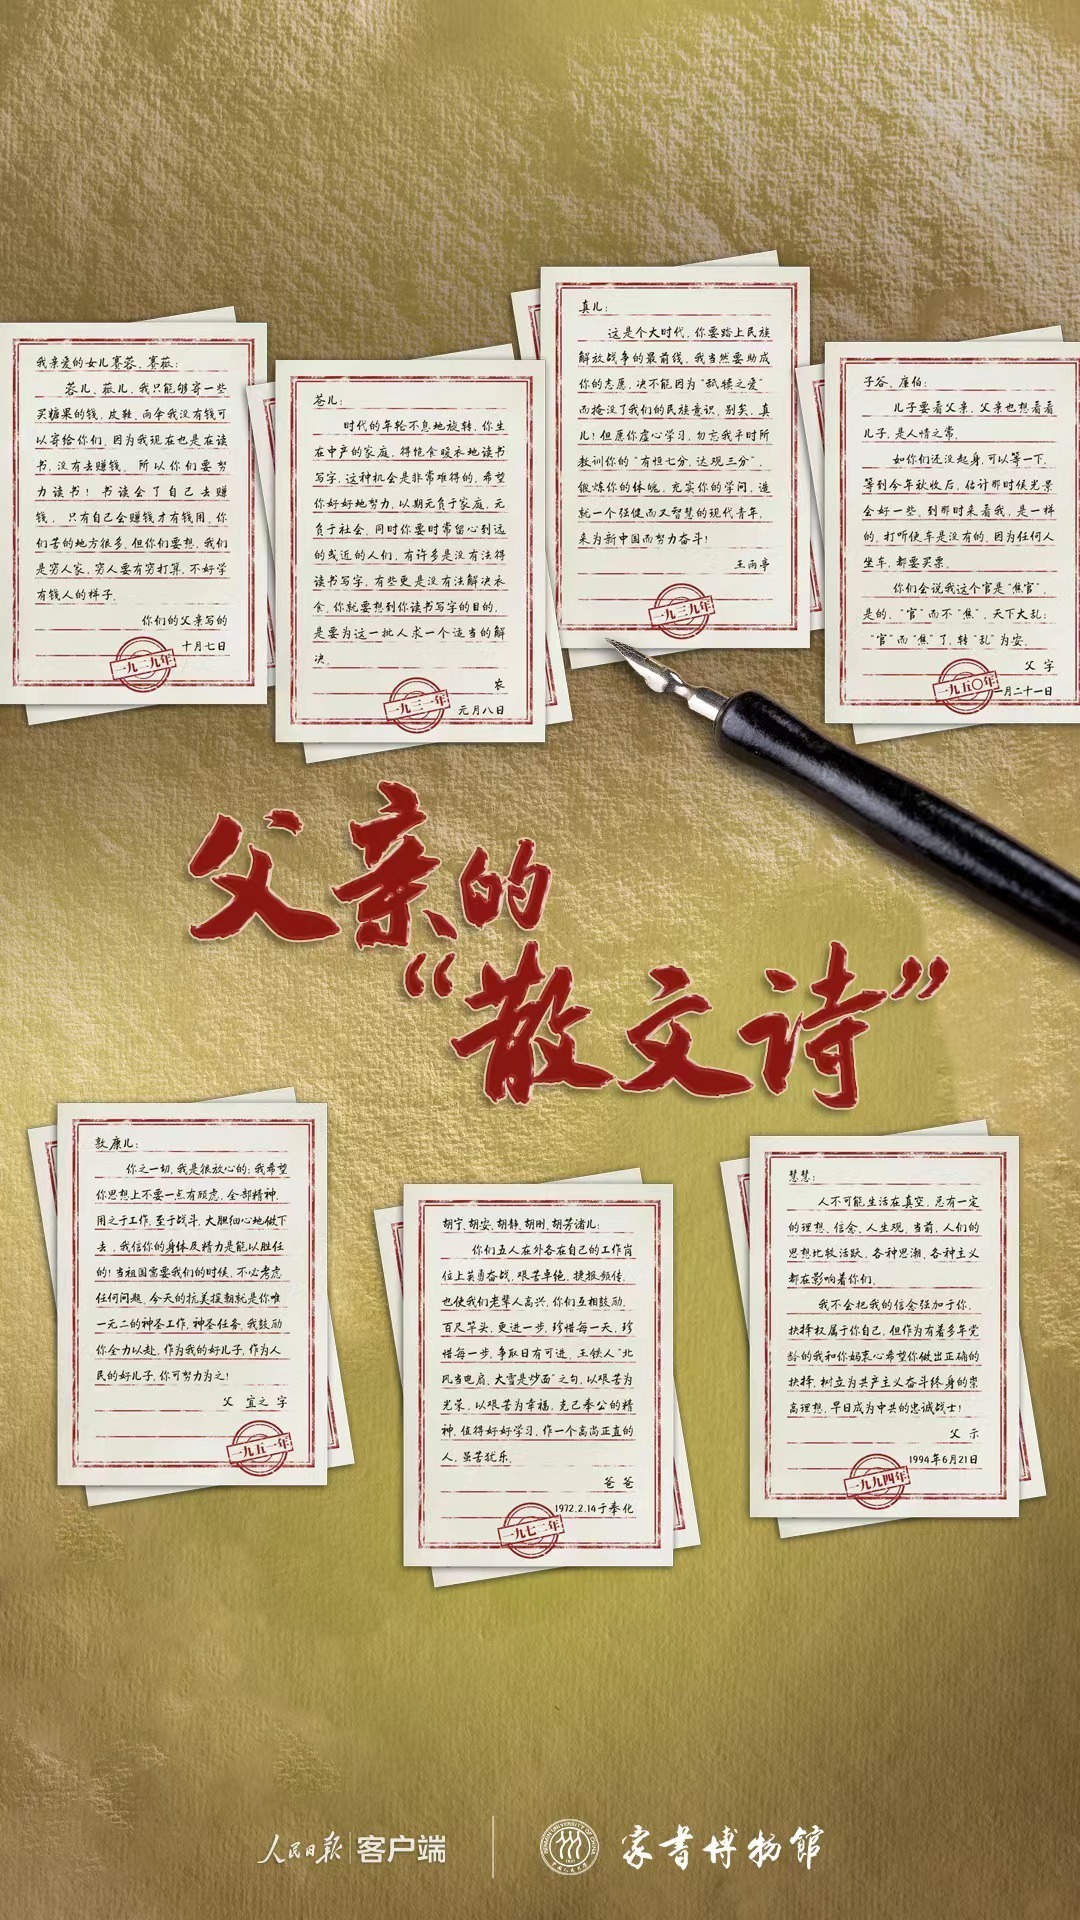 我亲爱的女儿赛蓉、赛菰:
蓉儿、菰儿,我只能够寄一些
买糖果的钱,皮鞋、雨伞我没有钱可
以寄给你们,因为我现在也是在读
书,没有去赚钱。所以你们要努
力读书!书读会了自己去赚
钱,只有自己会赚钱才有钱用。你
们苦的地方很多,但你们要想,我们
是穷人家,穷人要有穷打算,不好学
有钱人的样子。
你们的父亲写的
十月七日
一九二九年
苍儿:
时代的年轮不息地旋转,你生
在中产的家庭,得饱食暖衣地读书
写字,这种机会是非常难得的,希望
你好好地努力,以期无负于家庭,无
负于社会,同时你要时常留心到远
的或近的人们,有许多是没有法得
读书写字,有些更是没有法解决衣
食,你就要想到你读书写字的目的,
是要为这一批人求一个适当的解
决。
农
元月八日
一九三一年
真儿:
这是个大时代,你要踏上民族
解放战争的最前线,我当然要助成
你的志愿,决不能因为“舐犊之爱”
而掩没了我们的民族意识,别矣,真
儿!但愿你虚心学习,勿忘我平时所
教训你的“有恒七分,达观三分”,
锻炼你的体魄,充实你的学问,造
就一个强健而又智慧的现代青年,
来为新中国而努力奋斗!
王雨亭
一九三九年
子谷、廑伯:
儿子要看父亲,父亲也想看看
儿子,是人情之常。
如你们还没起身,可以等一下,
等到今年秋收后,估计那时候光景
会好一些,到那时来看我,是一样
的。打听便车是没有的,因为任何人
坐车,都要买票。
你们会说我这个官是“焦官”,
是的,“官”而不“焦”,天下大乱;
“官”而“焦”了,转“乱”为安。
父 字
一月二十一日
一九五〇年
父亲的
“散文诗”
敦康儿:
你之一切,我是很放心的;我希望
你思想上不要一点有顾虑,全部精神,
用之于工作,至于战斗,大胆细心地做下
去,我信你的身体及精力是能以胜任
的!当祖国需要我们的时候,不必考虑
任何问题,今天的抗美援朝就是你唯
一无二的神圣工作,神圣任务,我鼓励
你全力以赴,作为我的好儿子,作为人
民的好儿子,你可努力为之!
父 宜之 字
一九五一年
胡宁、胡安、胡静、胡刚、胡芳诸儿:
你们五人在外各在自己的工作岗
位上英勇奋战,艰苦卓绝,捷报频传,
也使我们老辈人高兴,你们互相鼓励,
百尺竿头,更进一步,珍惜每一天,珍
惜每一步,争取日有可进。王铁人“北
风当电扇,大雪是炒面”之句,以艰苦为
光荣,以艰苦为幸福,克己奉公的精
神,值得好好学习,作一个高尚正直的
人,虽苦犹乐。
爸爸
1972.2.14于奉化
一九七二年
慧慧:
人不可能生活在真空,总有一定
的理想、信念、人生观。当前,人们的
思想比较活跃,各种思潮、各种主义
都在影响着你们。
我不会把我的信念强加于你,
抉择权属于你自己,但作为有着多年党
龄的我和你妈衷心希望你做出正确的
抉择,树立为共产主义奋斗终身的崇
高理想,早日成为中共的忠诚战士!
父 示
1994年6月21日
一九九四年
人民日报 客户端
家书博物馆